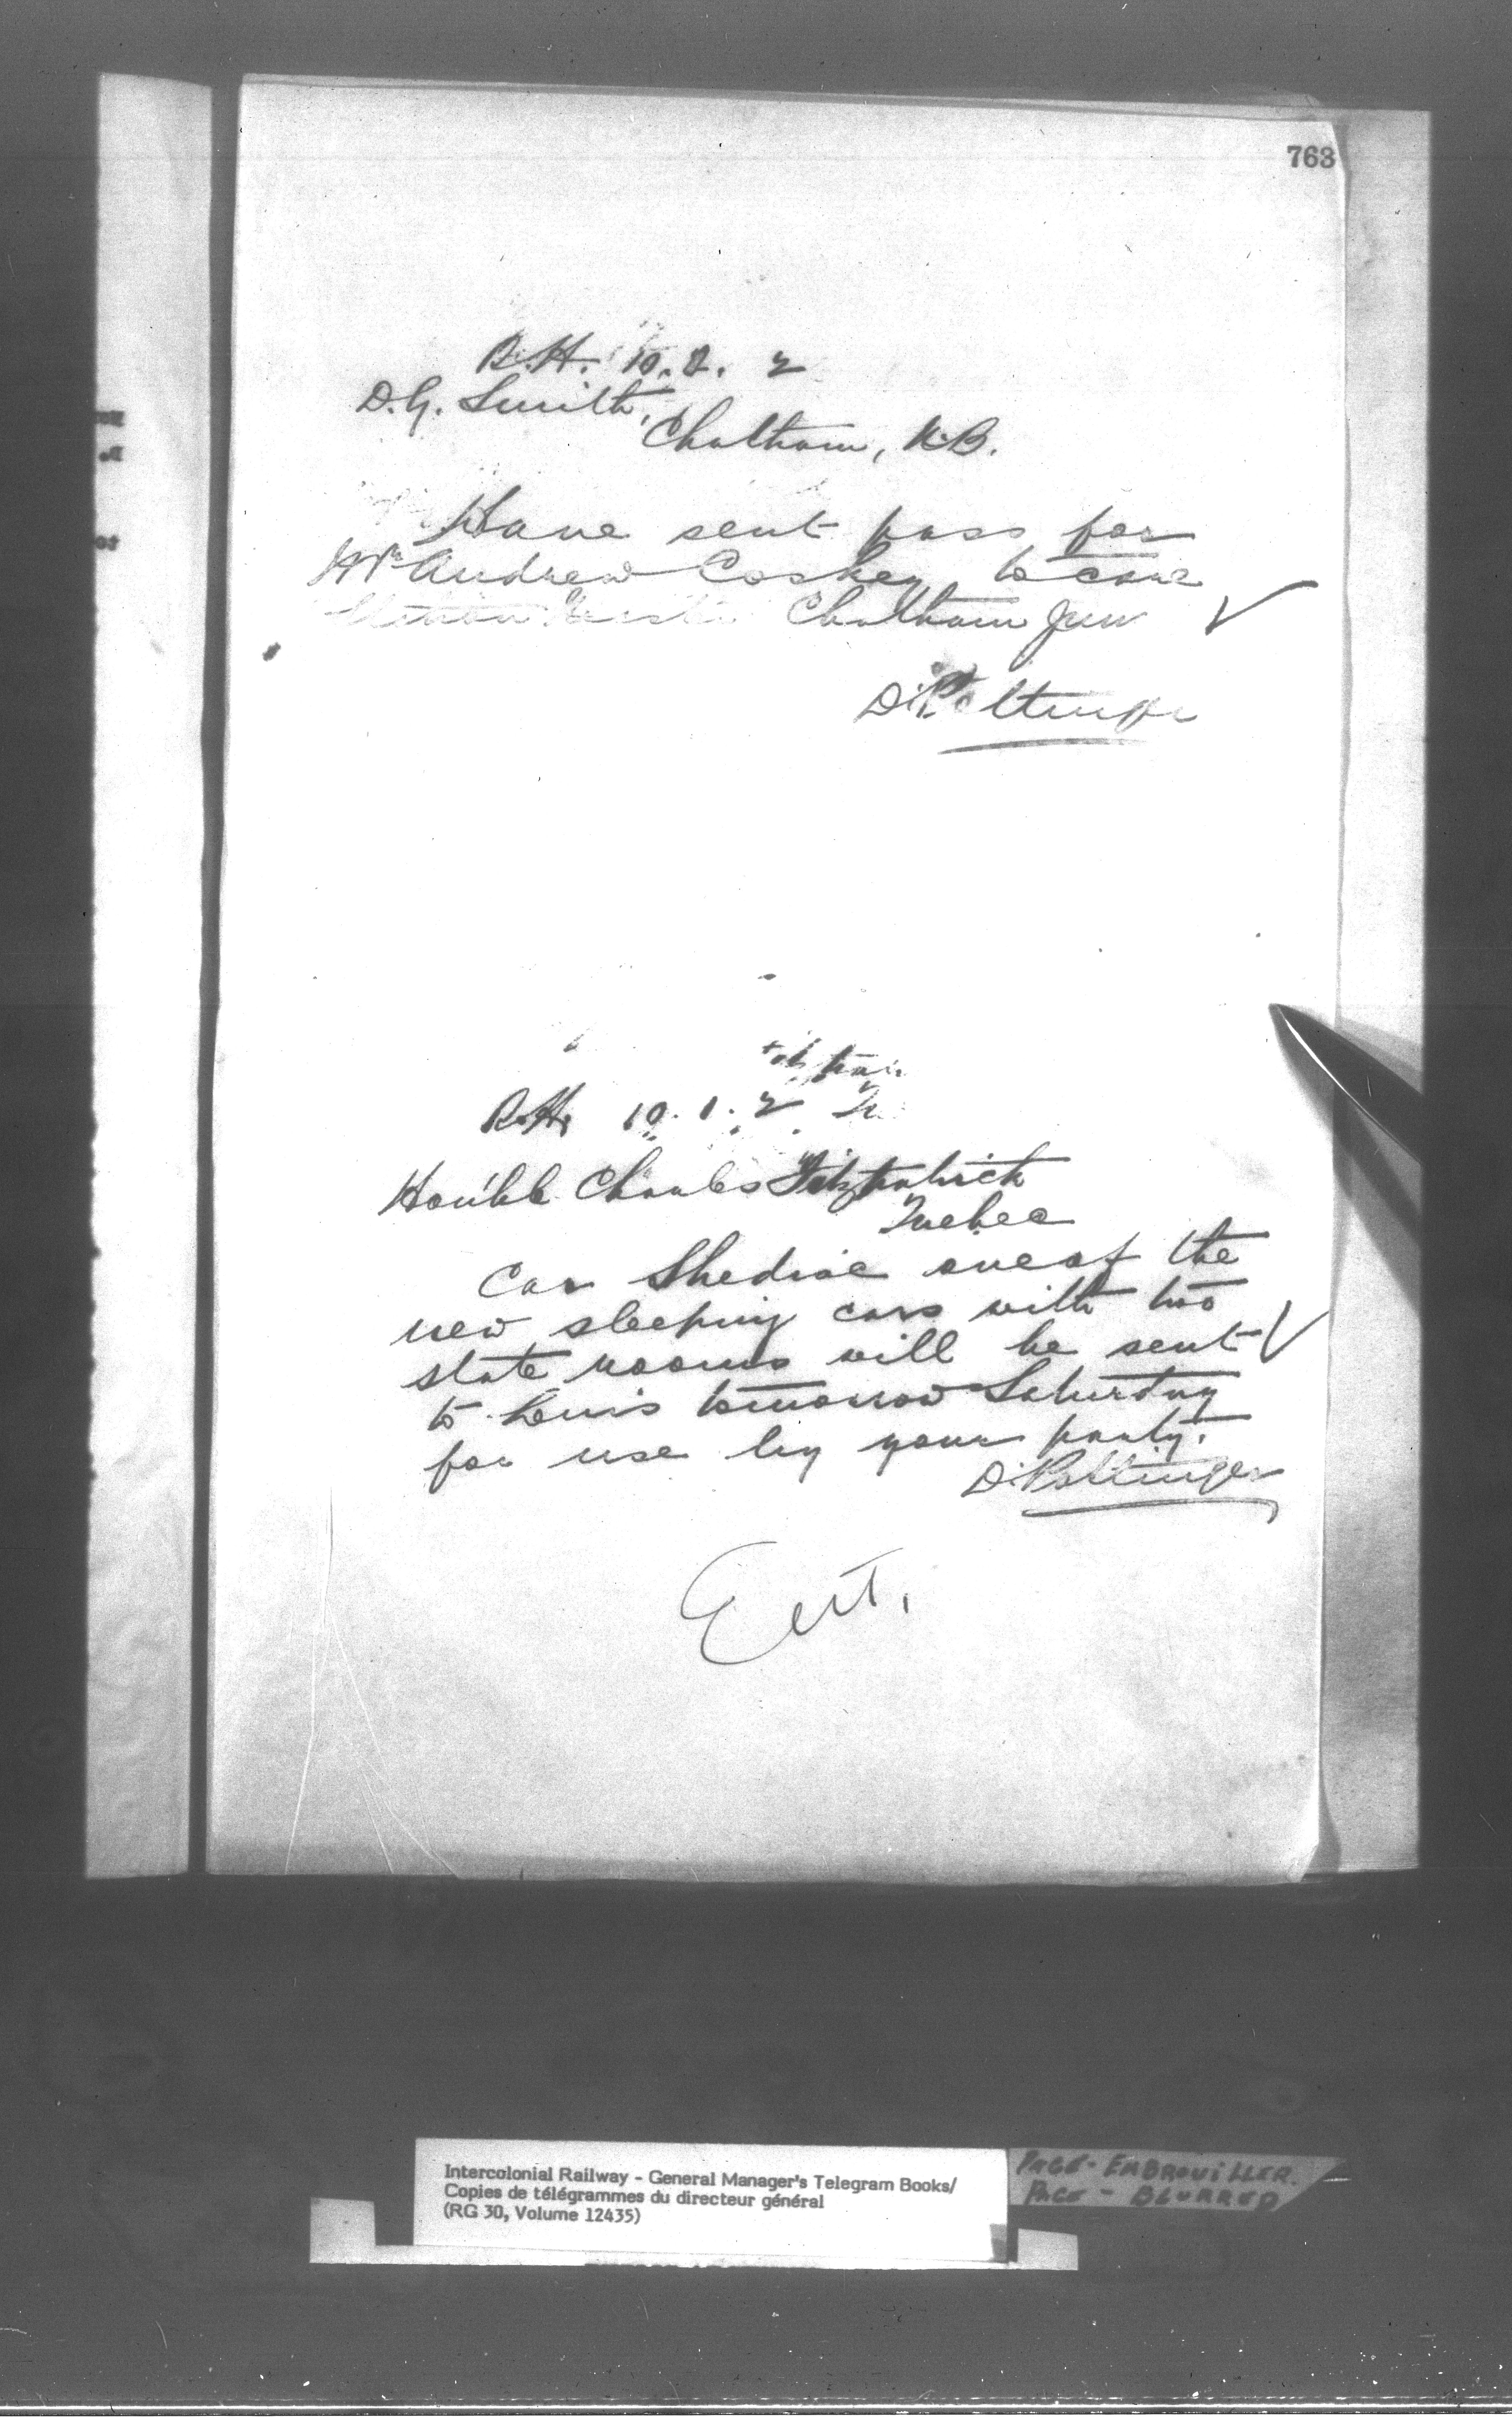 763
R.H. 10. 1. 2
D.G. Smith,
Chatham, N.B.
Have sent pass for
Mr Andrew Coskey, to care
Station Master Chatham Jun
D. Pottinger
R.H. 10. 1. 2
Hon'ble Charles Fitzpatrick
Quebec
Car Shediac one of the
new sleeping cars with two
state rooms will be sent
to Levis tomorrow Saturday
for use by your party.
D. Pottinger
Intercolonial Railway - General Manager's Telegram Books/
Copies de télégrammes du directeur général
(RG 30, Volume 12435)
PAGE - EMBROUILLER.
PAGE - BLURRED